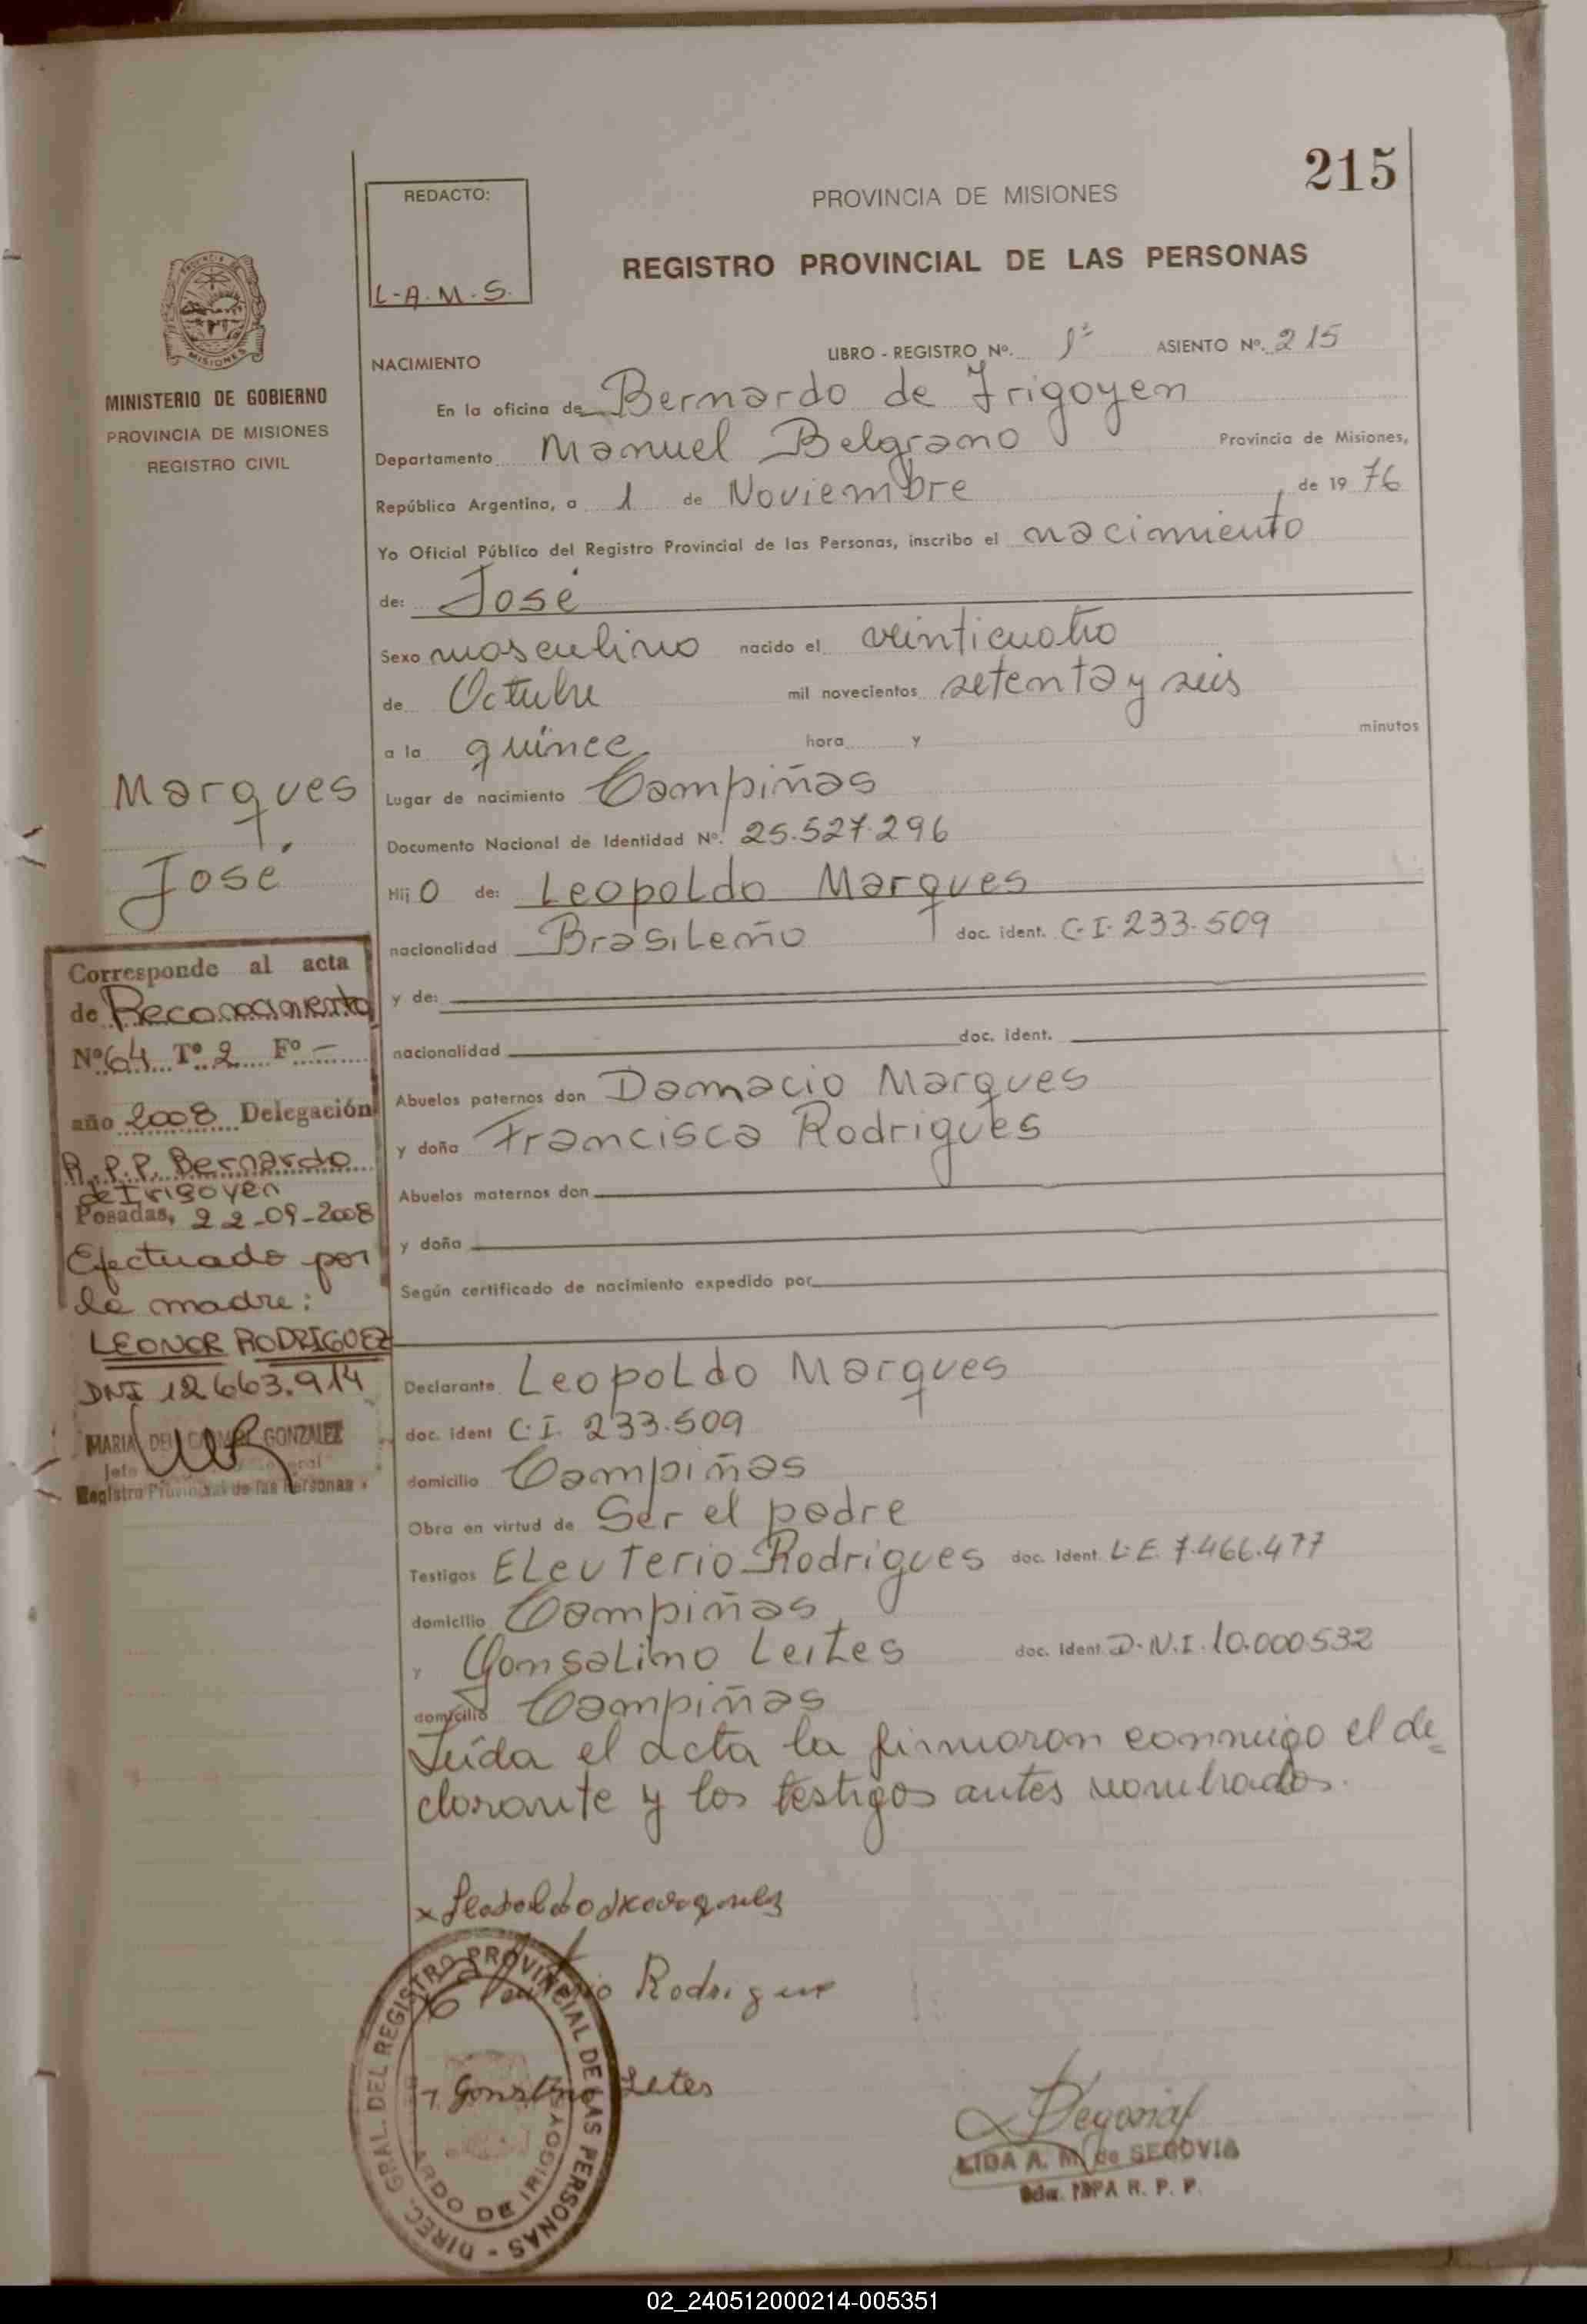 215
REDACTO:
L-A.M.S.
PROVINCIA DE MISIONES
REGISTRO PROVINCIAL DE LAS PERSONAS
MISIONES
MINISTERIO DE GOBIERNO
PROVINCIA DE MISIONES
REGISTRO CIVIL
NACIMIENTO
LIBRO - REGISTRO Nº. 1º ASIENTO Nº. 215
En la oficina de Bernardo de Irigoyen
Departamento Manuel Belgrano Provincia de Misiones,
República Argentina, a 1 de Noviembre de 19 76
Yo Oficial Público del Registro Provincial de las Personas, inscribo el nacimiento
de: José
Sexo masculino nacido el veinticuatro
de Octubre mil novecientos setenta y seis
a la quince hora y minutos
Lugar de nacimiento Campiñas
Documento Nacional de Identidad Nº. 25.527.296
Hij o de: Leopoldo Marques
nacionalidad Brasileño doc. ident. C-I-233-509
y de:
nacionalidad doc. ident.
Abuelos paternos don Damacio Marques
y doña Francisca Rodrigues
Abuelos maternos don
y doña
Según certificado de nacimiento expedido por
Declarante Leopoldo Marques
doc. ident C.I. 233.509
domicilio Campiñas
Obra en virtud de Ser el padre
Testigos Eleuterio Rodrigues doc. Ident. L.E. 7.466.477
domicilio Campiñas
y Gonsalino Leites doc. Ident. D.N.I. 10.000532
domicilio Campiñas
Leída el acta la firmaron conmigo el de
clarante y los testigos antes nombrados.
Marques
José
Corresponde al acta
de Reconocimiento
Nº 64 Tº 2 Fº -
año 2008 Delegación
R.P.P. Bernardo
de Irigoyen
Posadas, 22-09-2008
Efectuado por
la madre:
LEONOR RODRIGUEZ
DNI 12663.914
MARIA DEL CARMEN GONZALEZ
Registro Provincial de las Personas
Rodrigues
DIREC. GRAL. DEL REGISTRO PROVINCIAL DE LAS PERSONAS -
ARDO DE IRIGOYEN
LIDA A. M. de SEGOVIA
R. P. P.
02_240512000214-005351